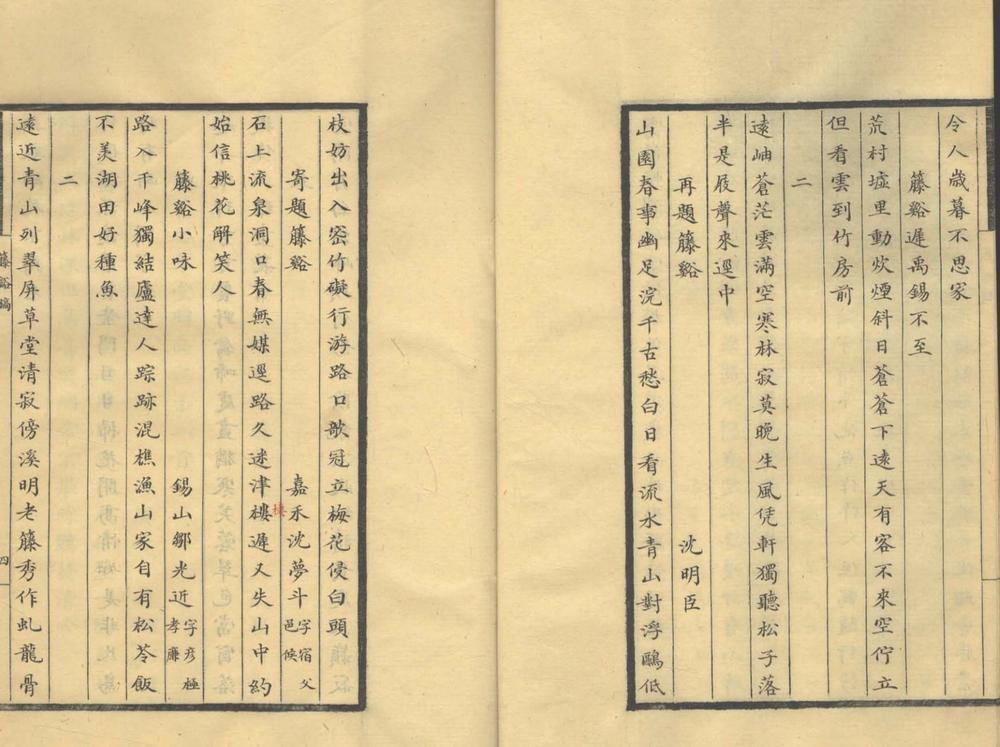 令人歳暮不思家
藤谿遲禹錫不至
荒村墟里動炊煙斜日蒼蒼下遠天有客不來空佇立
但看雲到竹房前
二
遠岫蒼茫雲滿空寒林寂莫晚生風凭軒獨聽松子落
半是屐聲來逕中
再題籐谿 沈明臣
山園春事幽足浣千古愁白日看流水青山對浮鷗低
枝妨出入密竹礙行游路口欹冠立梅花侵白頭
寄題籐谿 嘉禾沈夢斗字宿父邑候
石上流泉洞口春無媒逕路久迷津樓遲又失山中約
棲
始信桃花解笑人
籐谿小咏 錫山鄒光近字彥極孝廉
路入千峰獨結廬達人踪跡混樵漁山家自有松苓飯
不羨湖田好種魚
二
遠近青山列翠屏草堂清寂傍溪明老籐秀作虬龍骨
藤谿稿
四